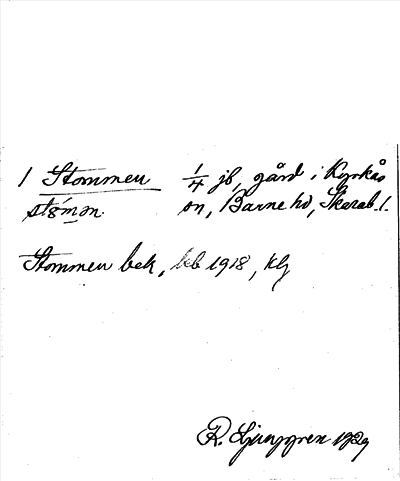 1 Stommen 1/4 jb, gård i Kyrkås
stömən. sn, Barne hd, Skarab. l.
Stommen bek, kb 1918, klg
R. Ljunggren 1929